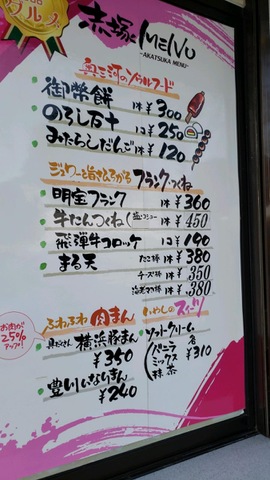 赤塚 MENU
-AKATSUKA MENU-
奥三河のソウルフード
御幣餅 1本 ¥300
のろし万十 1コ ¥250
みたらしだんご 1本 ¥120
ジュワーと旨さひろがる フランク・つくね
明宝フランク 1本 ¥360
牛たんつくね(塩コショー 1本 ¥450
飛騨牛コロッケ 1コ ¥190
まる天 たこ棒 1本 ¥380
チーズ棒 1本 ¥350
海老マヨ棒 1本 ¥380
お肉が
25%
アップ!
ふわふわ 肉まん
具だくさん 横浜豚まん
¥350
豊川いなりまん
¥240
いやしのスイーツ
ソフトクリーム
バニラ
ミックス
抹茶
各
¥310